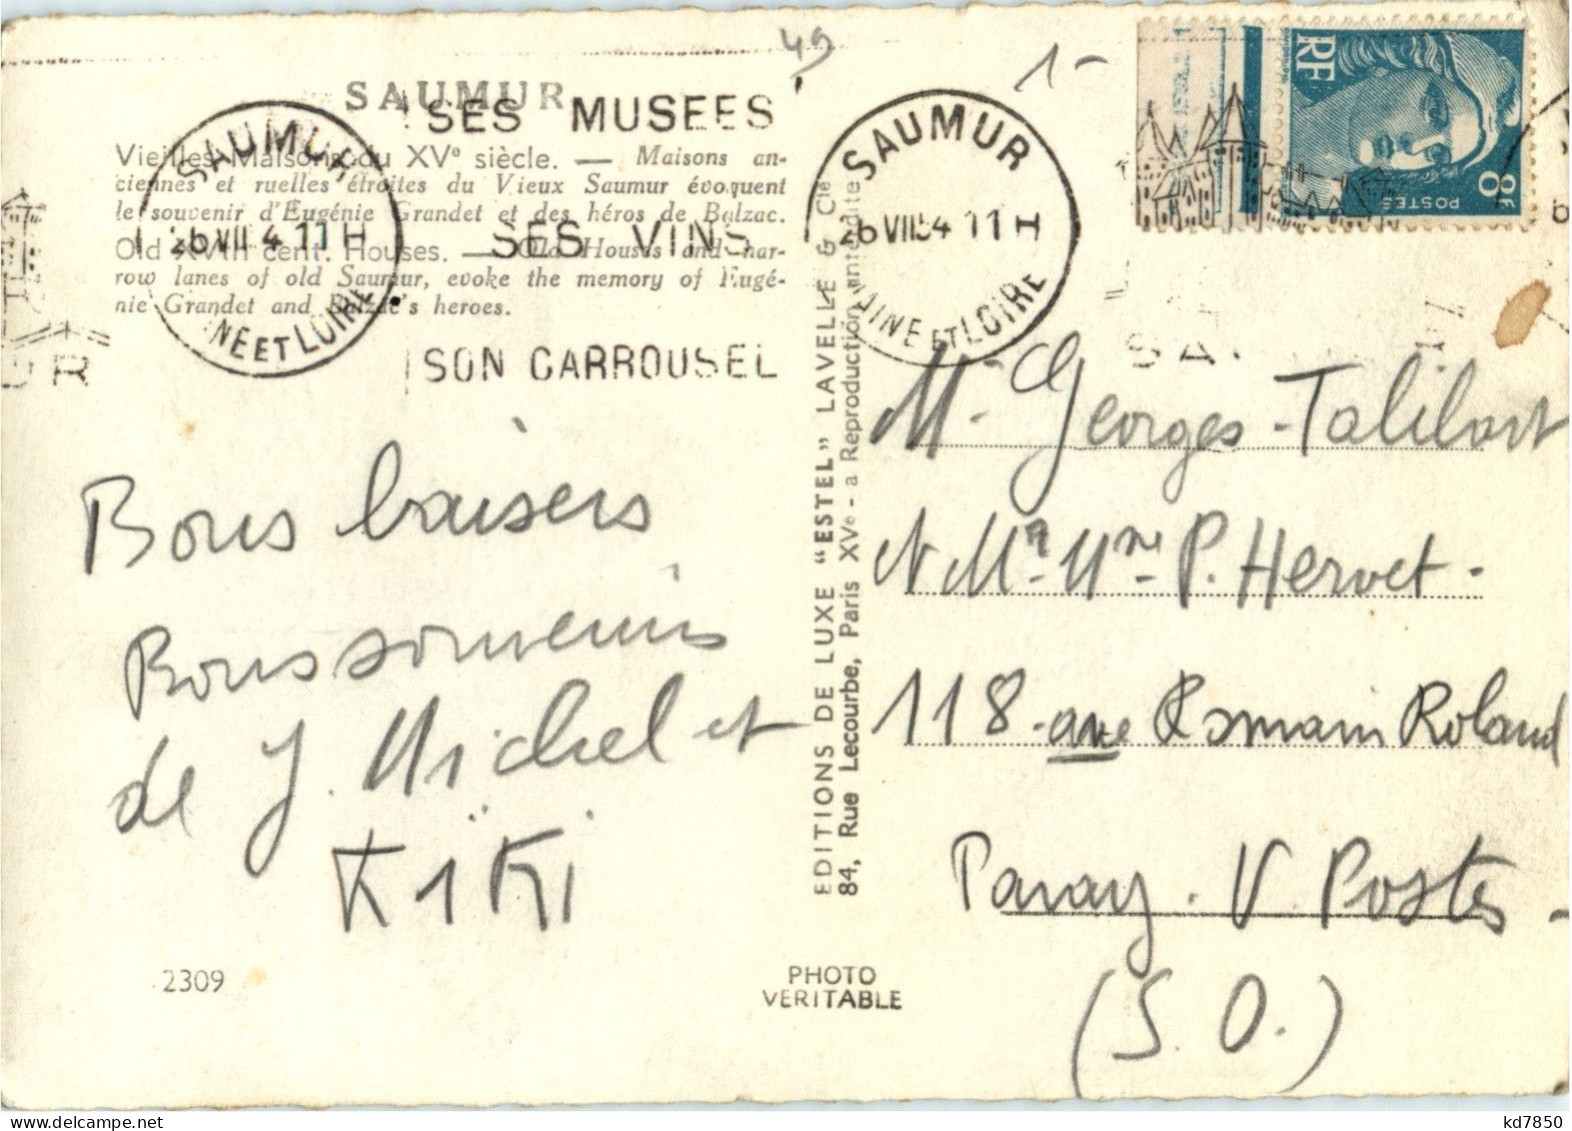 49
1-
SAUMUR
Vieilles Maisons du XVe siècle. — Maisons an-
ciennes et ruelles étroites du Vieux Saumur évoquent
le souvenir d'Eugénie Grandet et des héros de Balzac.
Old XVth cent. Houses. — Old Houses and nar-
row lanes of old Saumur, evoke the memory of Eugé-
nie Grandet and Balzac's heroes.
SAUMUR
ET LOIRE
SES MUSEES
SES VINS
SON CARROUSEL
SAUMUR
ET LOIRE
RF
POSTES
8F
Bons baisers
Bons souvenirs
de J. Michel et
KiKi
2309
EDITIONS DE LUXE "ESTEL" LAVELLE & Cie
84, Rue Lecourbe, Paris XVe - a Reproduction interdite
PHOTO
VERITABLE
Mr Georges Talibart
et Mr. Mme. P. Hervet.
118 ave Romain Roland
Paray. V. Postes.
(S. O.)
kd7850